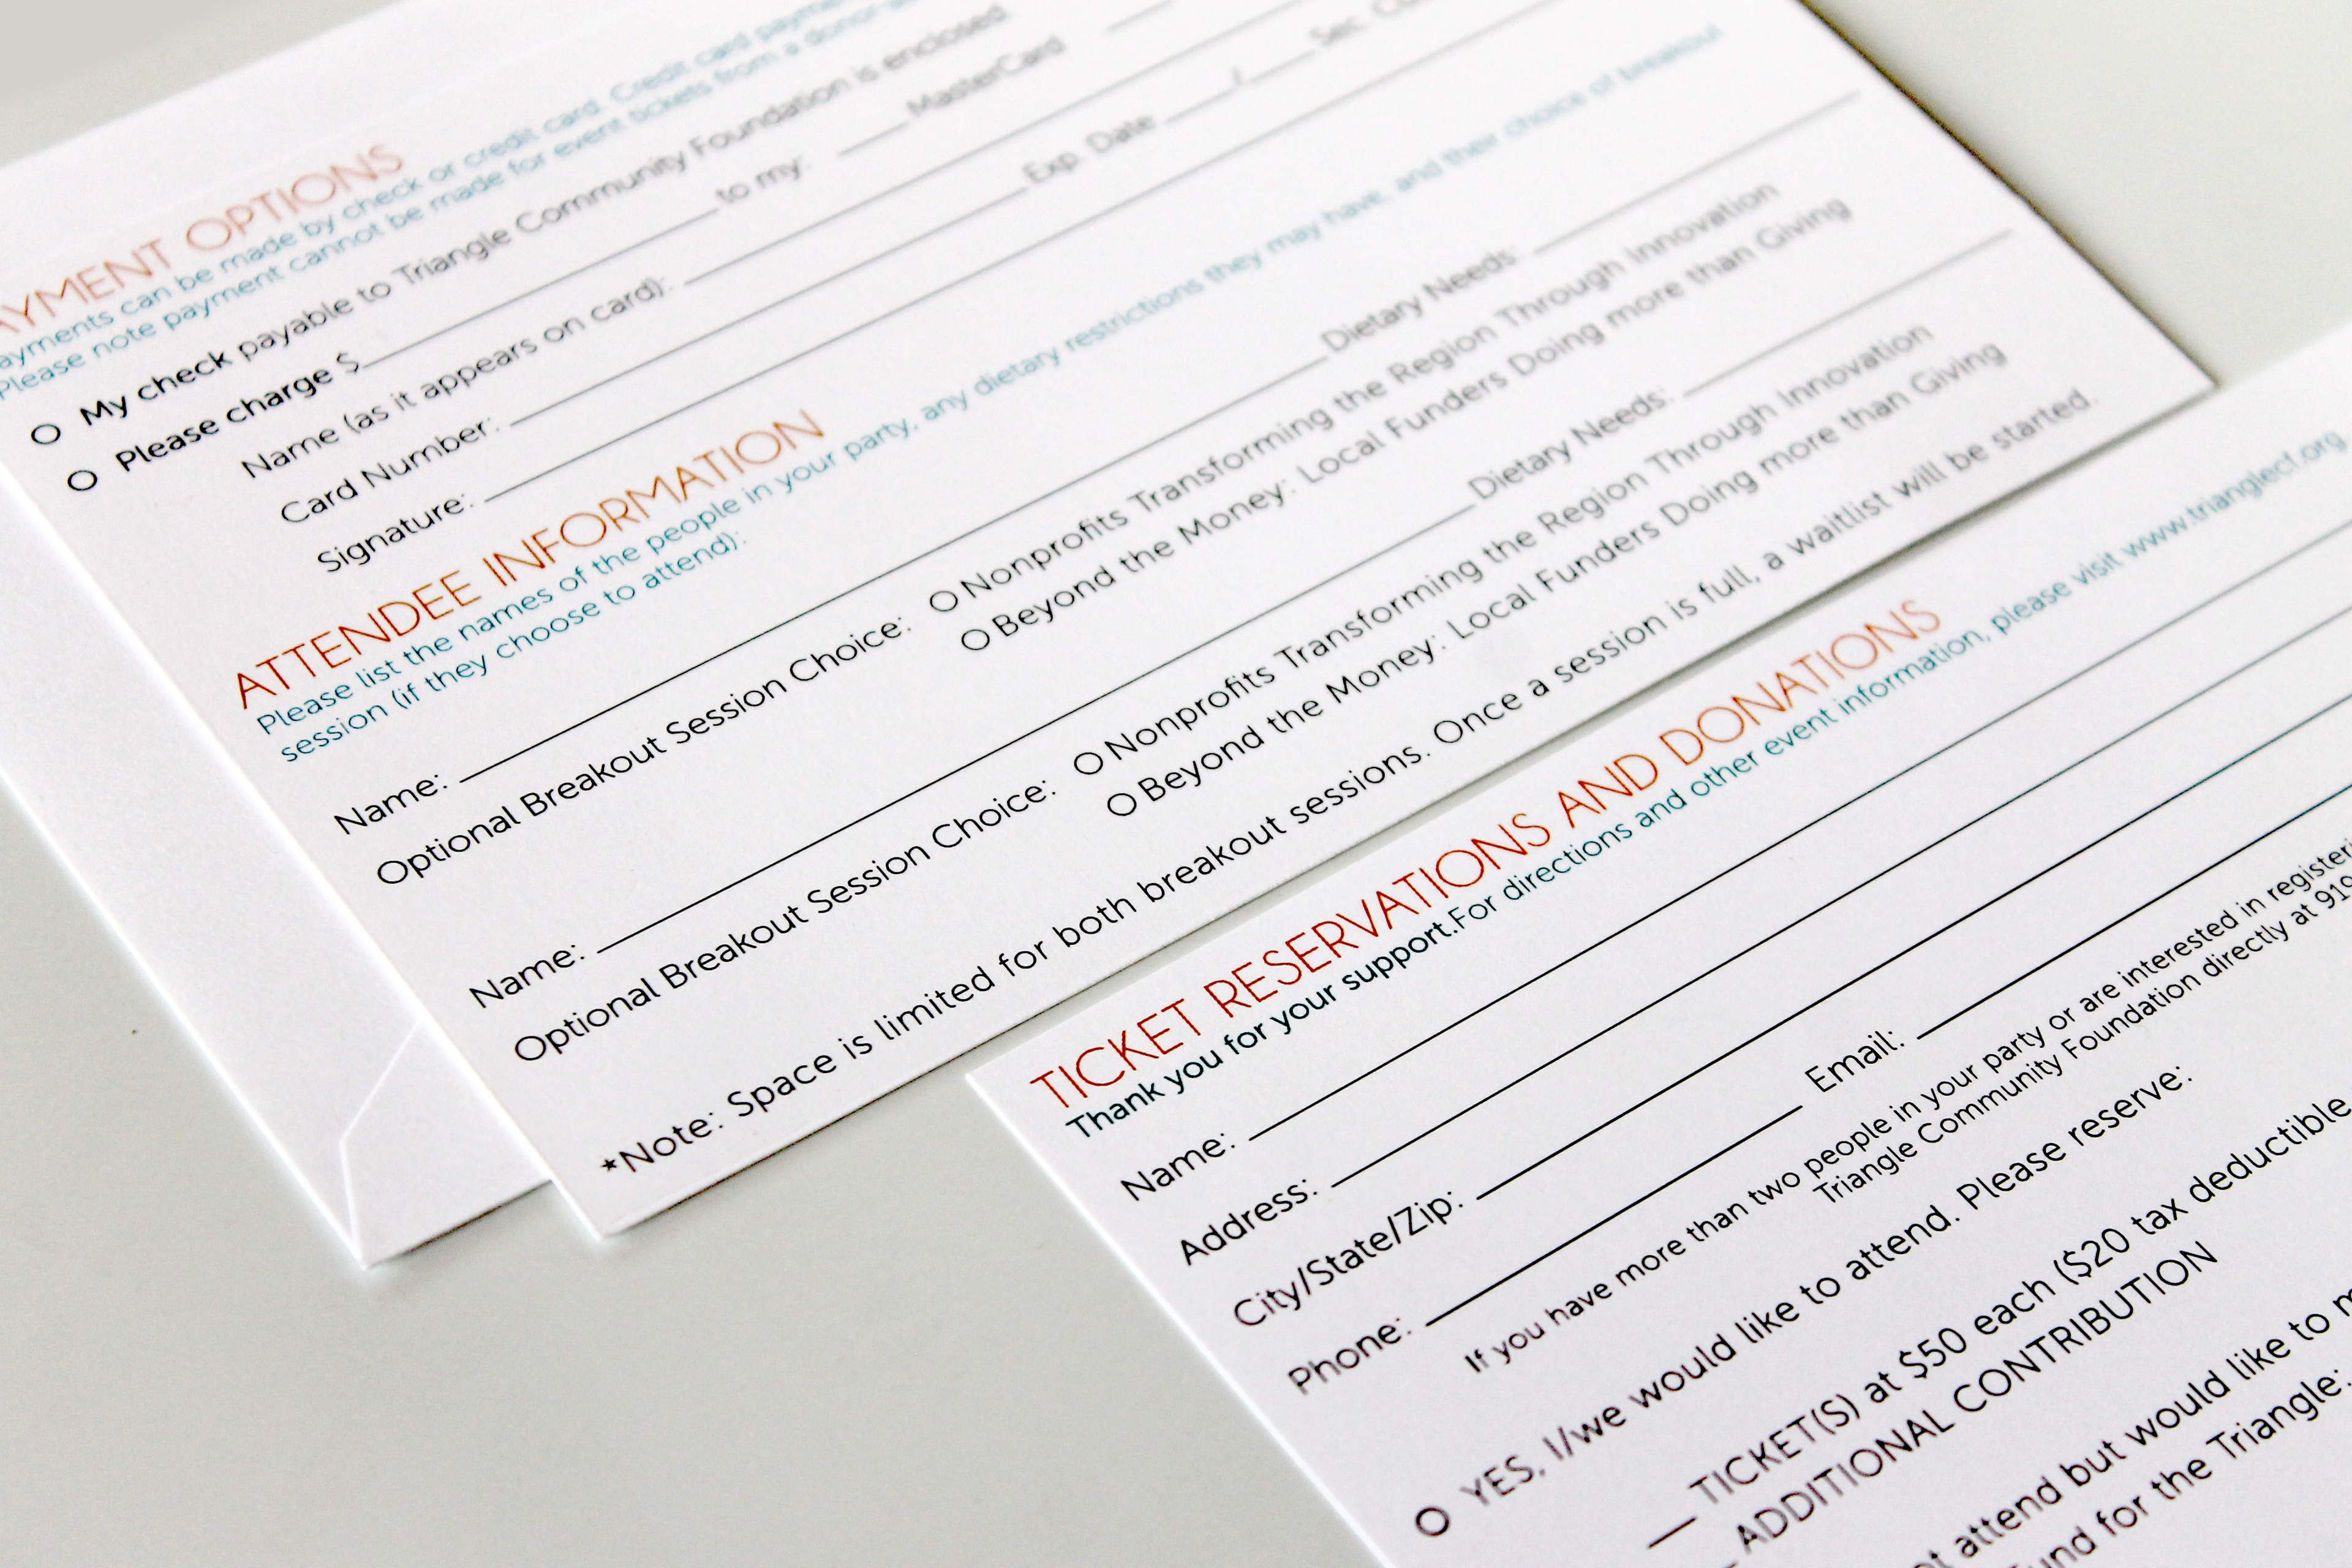 AYMENT OPTIONS
ayments can be made by check or credit card. Credit card
Please note payment cannot be made for event tickets from a
My check payable to Triangle Community Foundation is enclosed.
Please charge $ to my: MasterCard
Name (as it appears on card):
Card Number: Exp. Date / Sec.
Signature:
ATTENDEE INFORMATION
Please list the names of the people in your party, any dietary restrictions they may have, and their choice of breakout
session (if they choose to attend):
Name: Dietary Needs:
Optional Breakout Session Choice: Nonprofits Transforming the Region Through Innovation
Beyond the Money: Local Funders Doing more than Giving
Name: Dietary Needs:
Optional Breakout Session Choice: Nonprofits Transforming the Region Through Innovation
Beyond the Money: Local Funders Doing more than Giving
*Note: Space is limited for both breakout sessions. Once a session is full, a waitlist will be started.
TICKET RESERVATIONS AND DONATIONS
Thank you for your support.For directions and other event information, please visit www.trianglecf.org
Name:
Address:
City/State/Zip:
Phone: Email:
If you have more than two people in your party or are interested in registeri
Triangle Community Foundation directly at 919
YES, I/we would like to attend. Please reserve:
TICKET(S) at $50 each ($20 tax deductible
ADDITIONAL CONTRIBUTION
attend but would like to m
und for the Triangle: